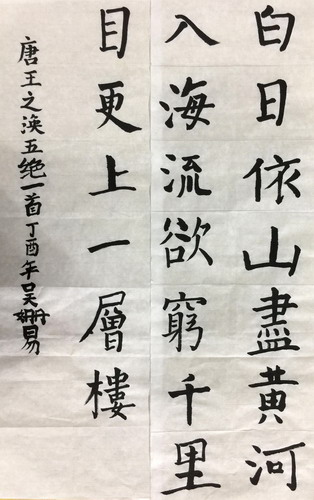 白日依山盡黄河
入海流欲窮千里
目更上一層樓
唐王之涣五绝一首丁酉年吴姗易